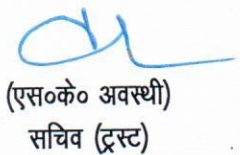 (एस०के० अवस्थी)
सचिव (ट्रस्ट)